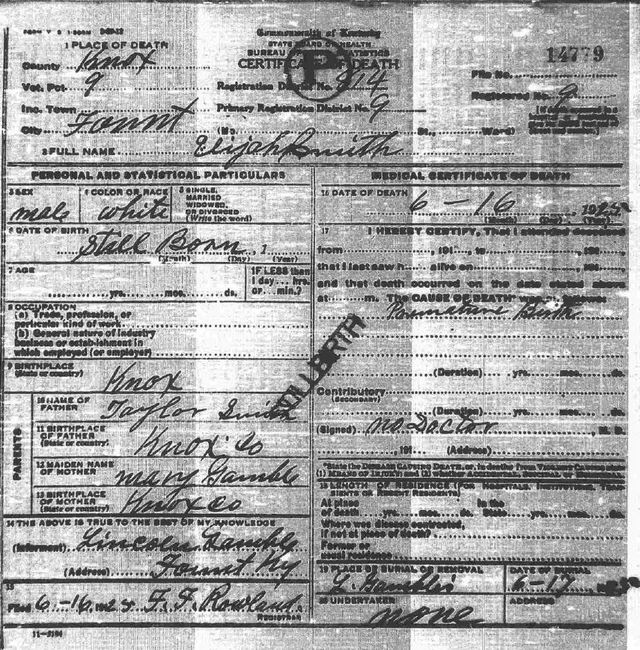 Commonwealth of Kentucky
STATE BOARD OF HEALTH
BUREAU OF STATISTICS
CERTIFICATE OF DEATH
1 PLACE OF DEATH
County Knox
Vot. Pct 9
Inc. Town
City Fount
Registration District No. 814
Primary Registration District No. 9
File No. 14779
Registered No. 9
(No. St., Ward)
2 FULL NAME Elijah Smith
PERSONAL AND STATISTICAL PARTICULARS
3 SEX male
4 COLOR OR RACE white
5 SINGLE, MARRIED WIDOWED, OR DIVORCED (Write the word)
6 DATE OF BIRTH Still Born, 1
(Month) (Day) (Year)
7 AGE
yrs. mos. ds.
IF LESS than 1 day hrs. or min.?
8 OCCUPATION
(a) Trade, profession, or
particular kind of work
(b) General nature of industry
business or establishment in
which employed (or employer)
9 BIRTHPLACE (State or country) Knox
PARENTS
10 NAME OF FATHER Taylor Smith
11 BIRTHPLACE OF FATHER (State or country) Knox Co
12 MAIDEN NAME OF MOTHER Mary Gamble
13 BIRTHPLACE OF MOTHER (State or country) Knox Co
14 THE ABOVE IS TRUE TO THE BEST OF MY KNOWLEDGE
(Informant) Lincoln Gamble
(Address) Fount Ky
15
Filed 6-16 F. F. Rowland
REGISTRAR
11-3194
STILLBIRTH
MEDICAL CERTIFICATE OF DEATH
16 DATE OF DEATH 6-16
(Month) (Day) (Year)
17 I HEREBY CERTIFY, That I attended deceased
from , 191 to , 191
that I last saw h alive on
and that death occurred on the date stated above
at m. The CAUSE OF DEATH
Premature Birth
(Duration) yrs. mos. ds.
Contributory
(SECONDARY)
(Duration) yrs. mos. ds.
(Signed) no Doctor, M. D.
, 191 (Address)
*State the DISEASE CAUSING DEATH, or, in deaths from VIOLENT CAUSES
18 LENGTH OF RESIDENCE (FOR HOSPITALS,
SIENTS OR RECENT RESIDENTS)
At place of death yrs. mos. ds.
In the State yrs. mos. ds.
Where was disease contracted,
if not at place of death?
Former or
usual residence
19 PLACE OF BURIAL OR REMOVAL G. Gamble's
DATE OF BURIAL 6-17
20 UNDERTAKER none
ADDRESS